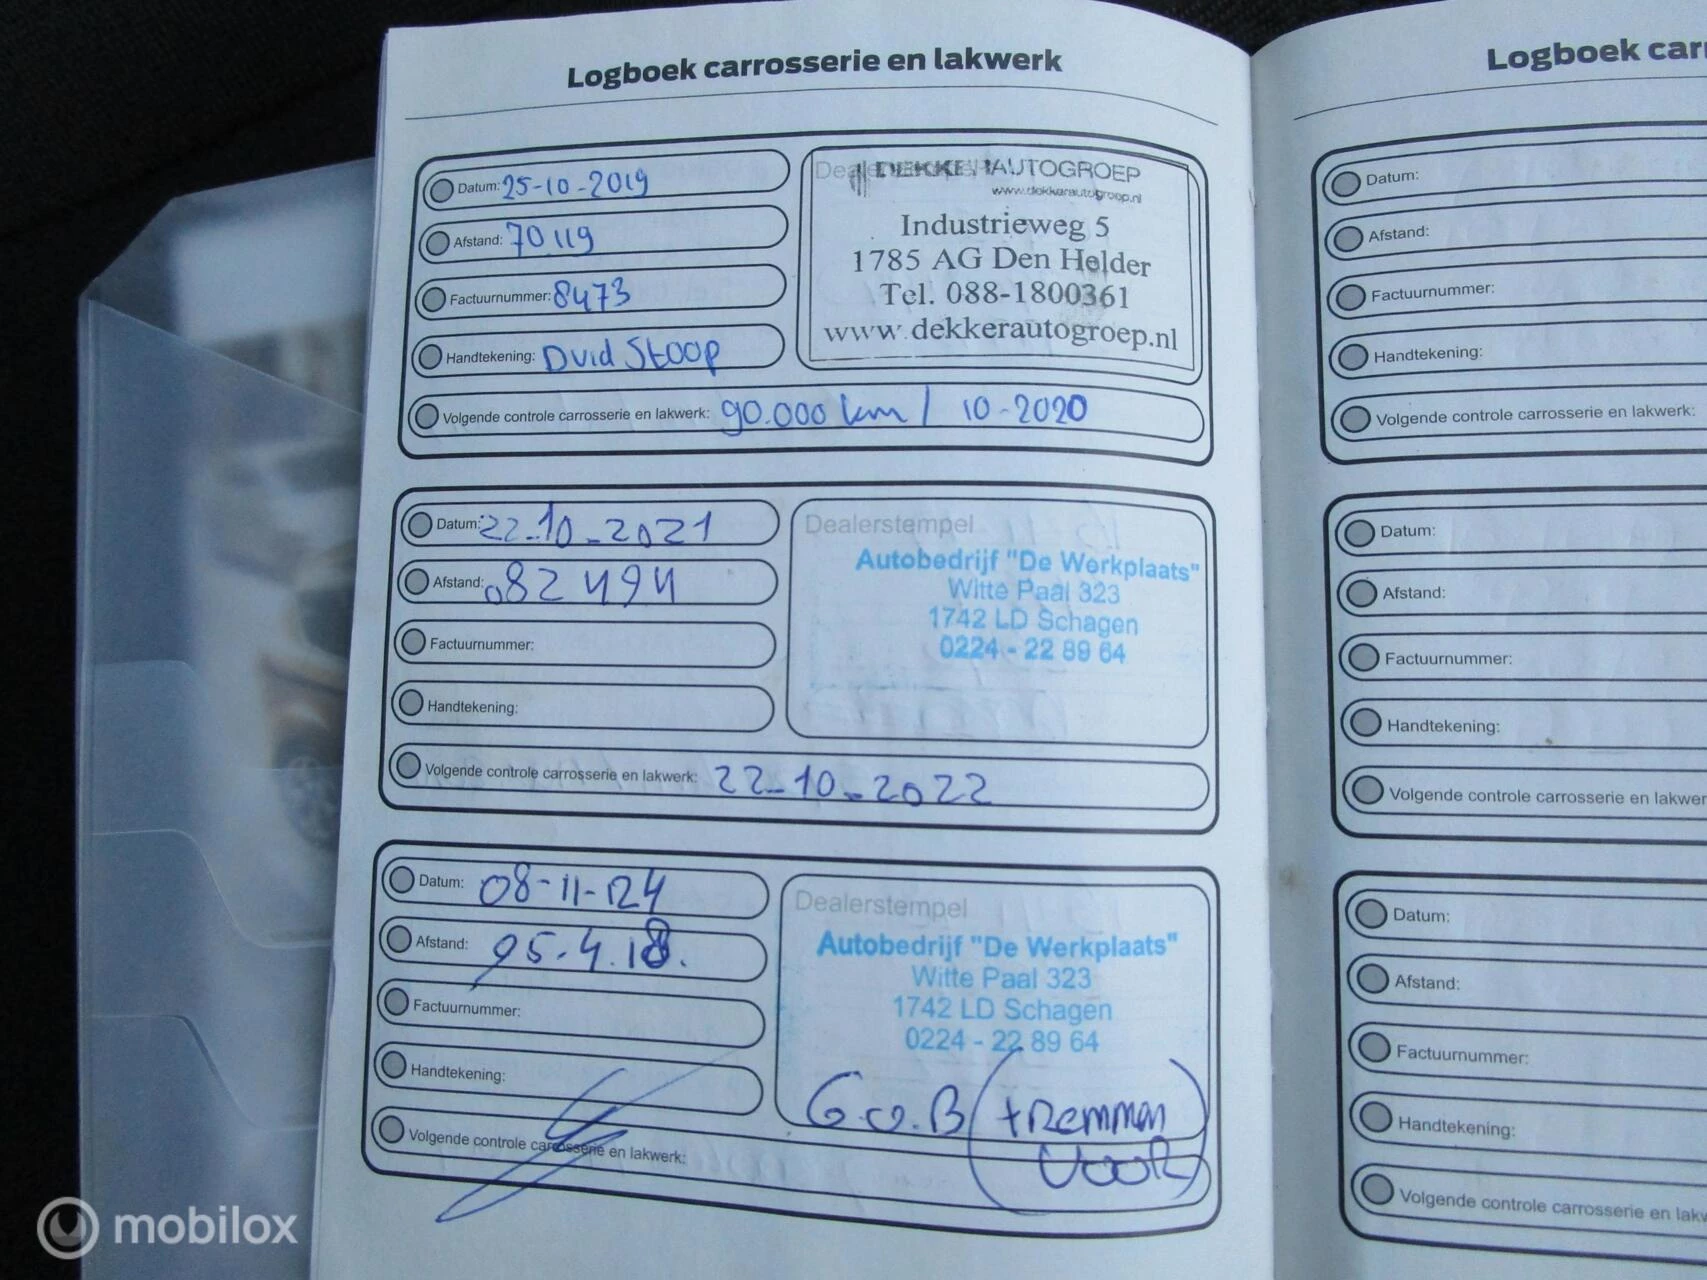 Logboek carrosserie en lakwerk
Datum: 25-10-2019
Afstand: 70119
Factuurnummer: 8473
Handtekening: Dvid Stoop
DEKKERAUTOGROEP
www.dekkerautogroep.nl
Industrieweg 5
1785 AG Den Helder
Tel. 088-1800361
www.dekkerautogroep.nl
Volgende controle carrosserie en lakwerk: 90.000 km / 10-2020
Datum: 22-10-2021
Afstand: 082494
Factuurnummer:
Handtekening:
Dealerstempel
Autobedrijf "De Werkplaats"
Witte Paal 323
1742 LD Schagen
0224 - 22 89 64
Volgende controle carrosserie en lakwerk: 22-10-2022
Datum: 08-11-
Afstand: 95.4.18.
Factuurnummer:
Handtekening:
Dealerstempel
Autobedrijf "De Werkplaats"
Witte Paal 323
1742 LD Schagen
0224 - 22 89 64
G.v.B (+Remmen
VOOR)
Volgende controle carrosserie en lakwerk:
Logboek car
Datum:
Afstand:
Factuurnummer:
Handtekening:
Volgende controle carrosserie en lakwerk:
Datum:
Afstand:
Factuurnummer:
Handtekening:
Volgende controle carrosserie en lakwer
Datum:
Afstand:
Factuurnummer:
Handtekening:
Volgende controle carrosserie en lakw
mobilox